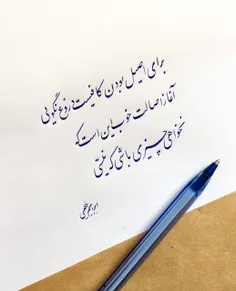 برای اصیل بودن کافیست دروغ نگویی
آغاز اصالت خوب این است که
نخواهی چیزی باشی که نیستی